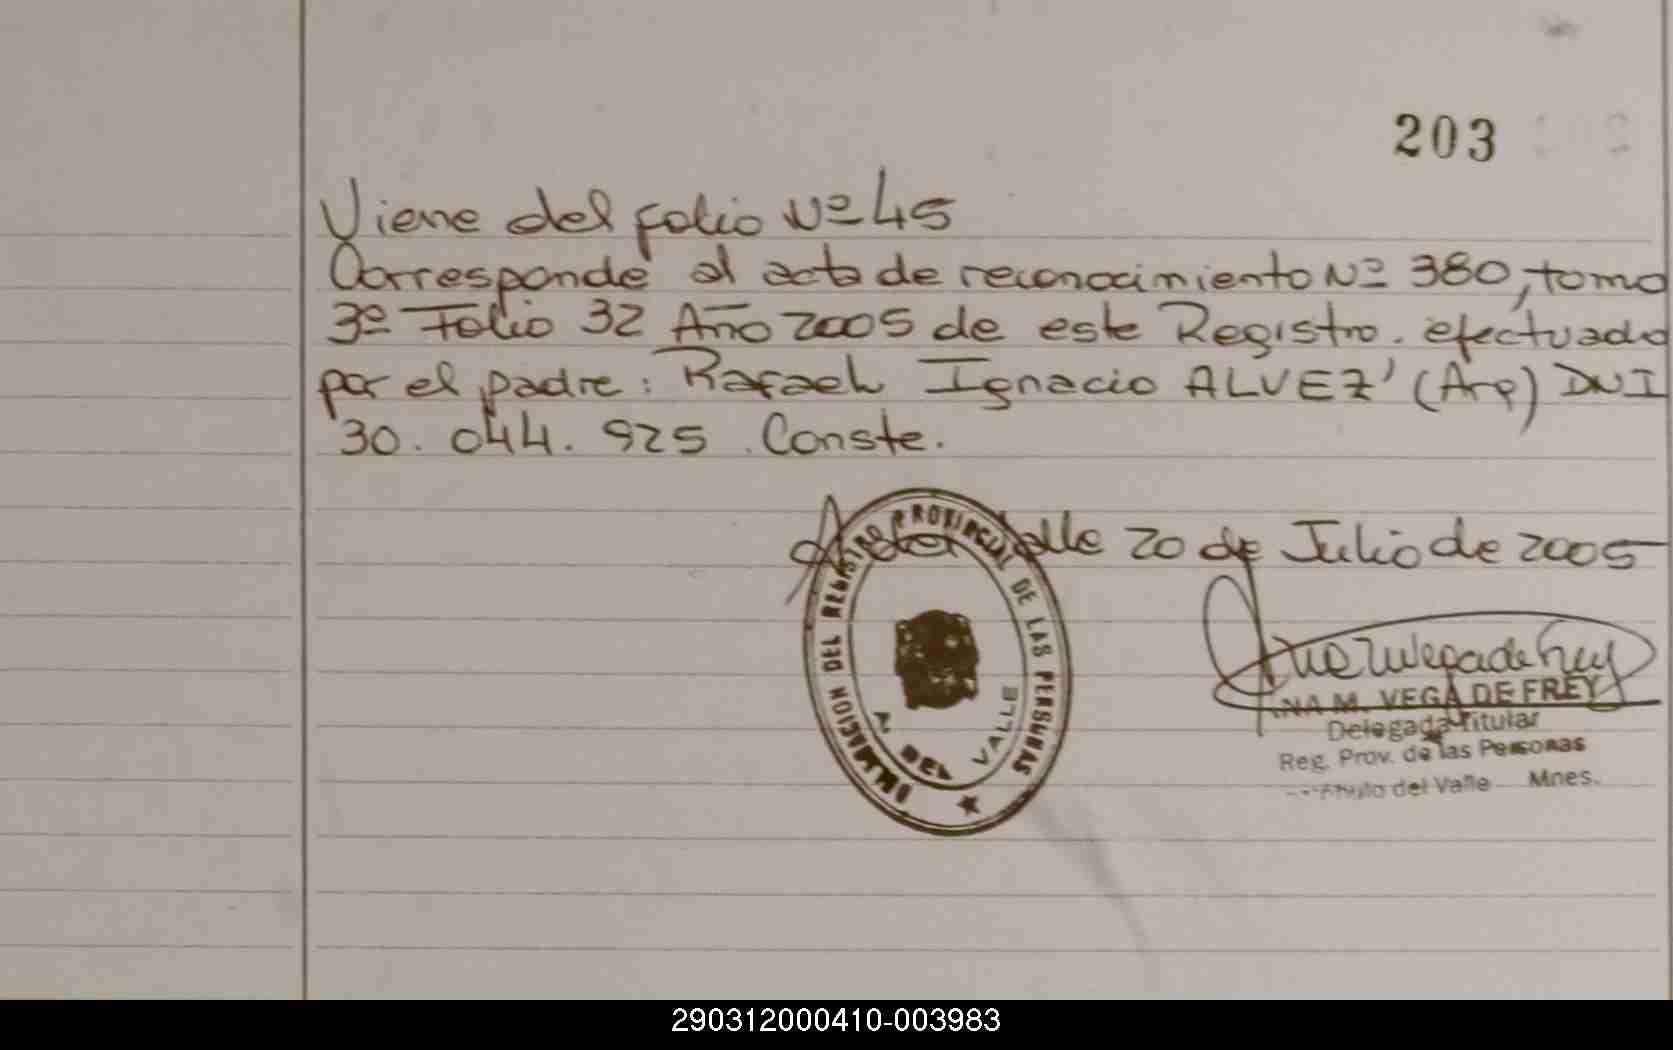 203
Viene del folio Nº 45
Corresponde al acta de reconocimiento Nº 380, tomo
3º Folio 32 Año 2005 de este Registro. efectuado
por el padre: Rafael Ignacio ALVEZ' (Arg) DNI
30.044.925. Conste.
A. del Valle 20 de Julio de 2005
DEL REGISTRO PROVINCIAL DE LAS PERSONAS
A. DEL VALLE
Ana M Vega de Frey
ANA M. VEGA DE FREY
Delegada Titular
Reg. Prov. de las Personas
del Valle - Mnes.
290312000410-003983